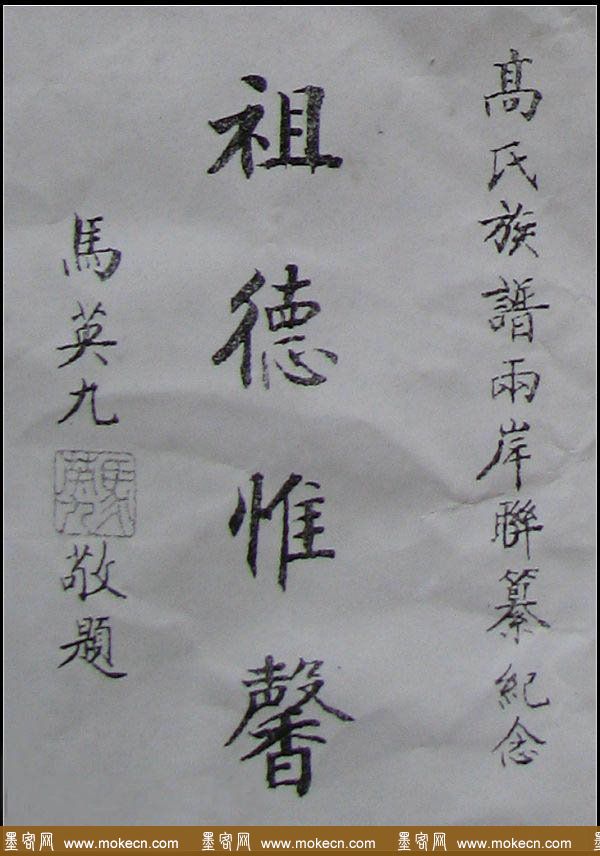 高氏族譜兩岸聯纂紀念
祖德惟馨
馬英九
馬英九
敬題
墨客网 www.mokecn.com 墨客网 www.mokecn.com 墨客网 www.mokecn.com